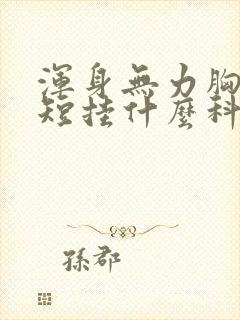 渾身無力胸
短挂什麼科
孫郡